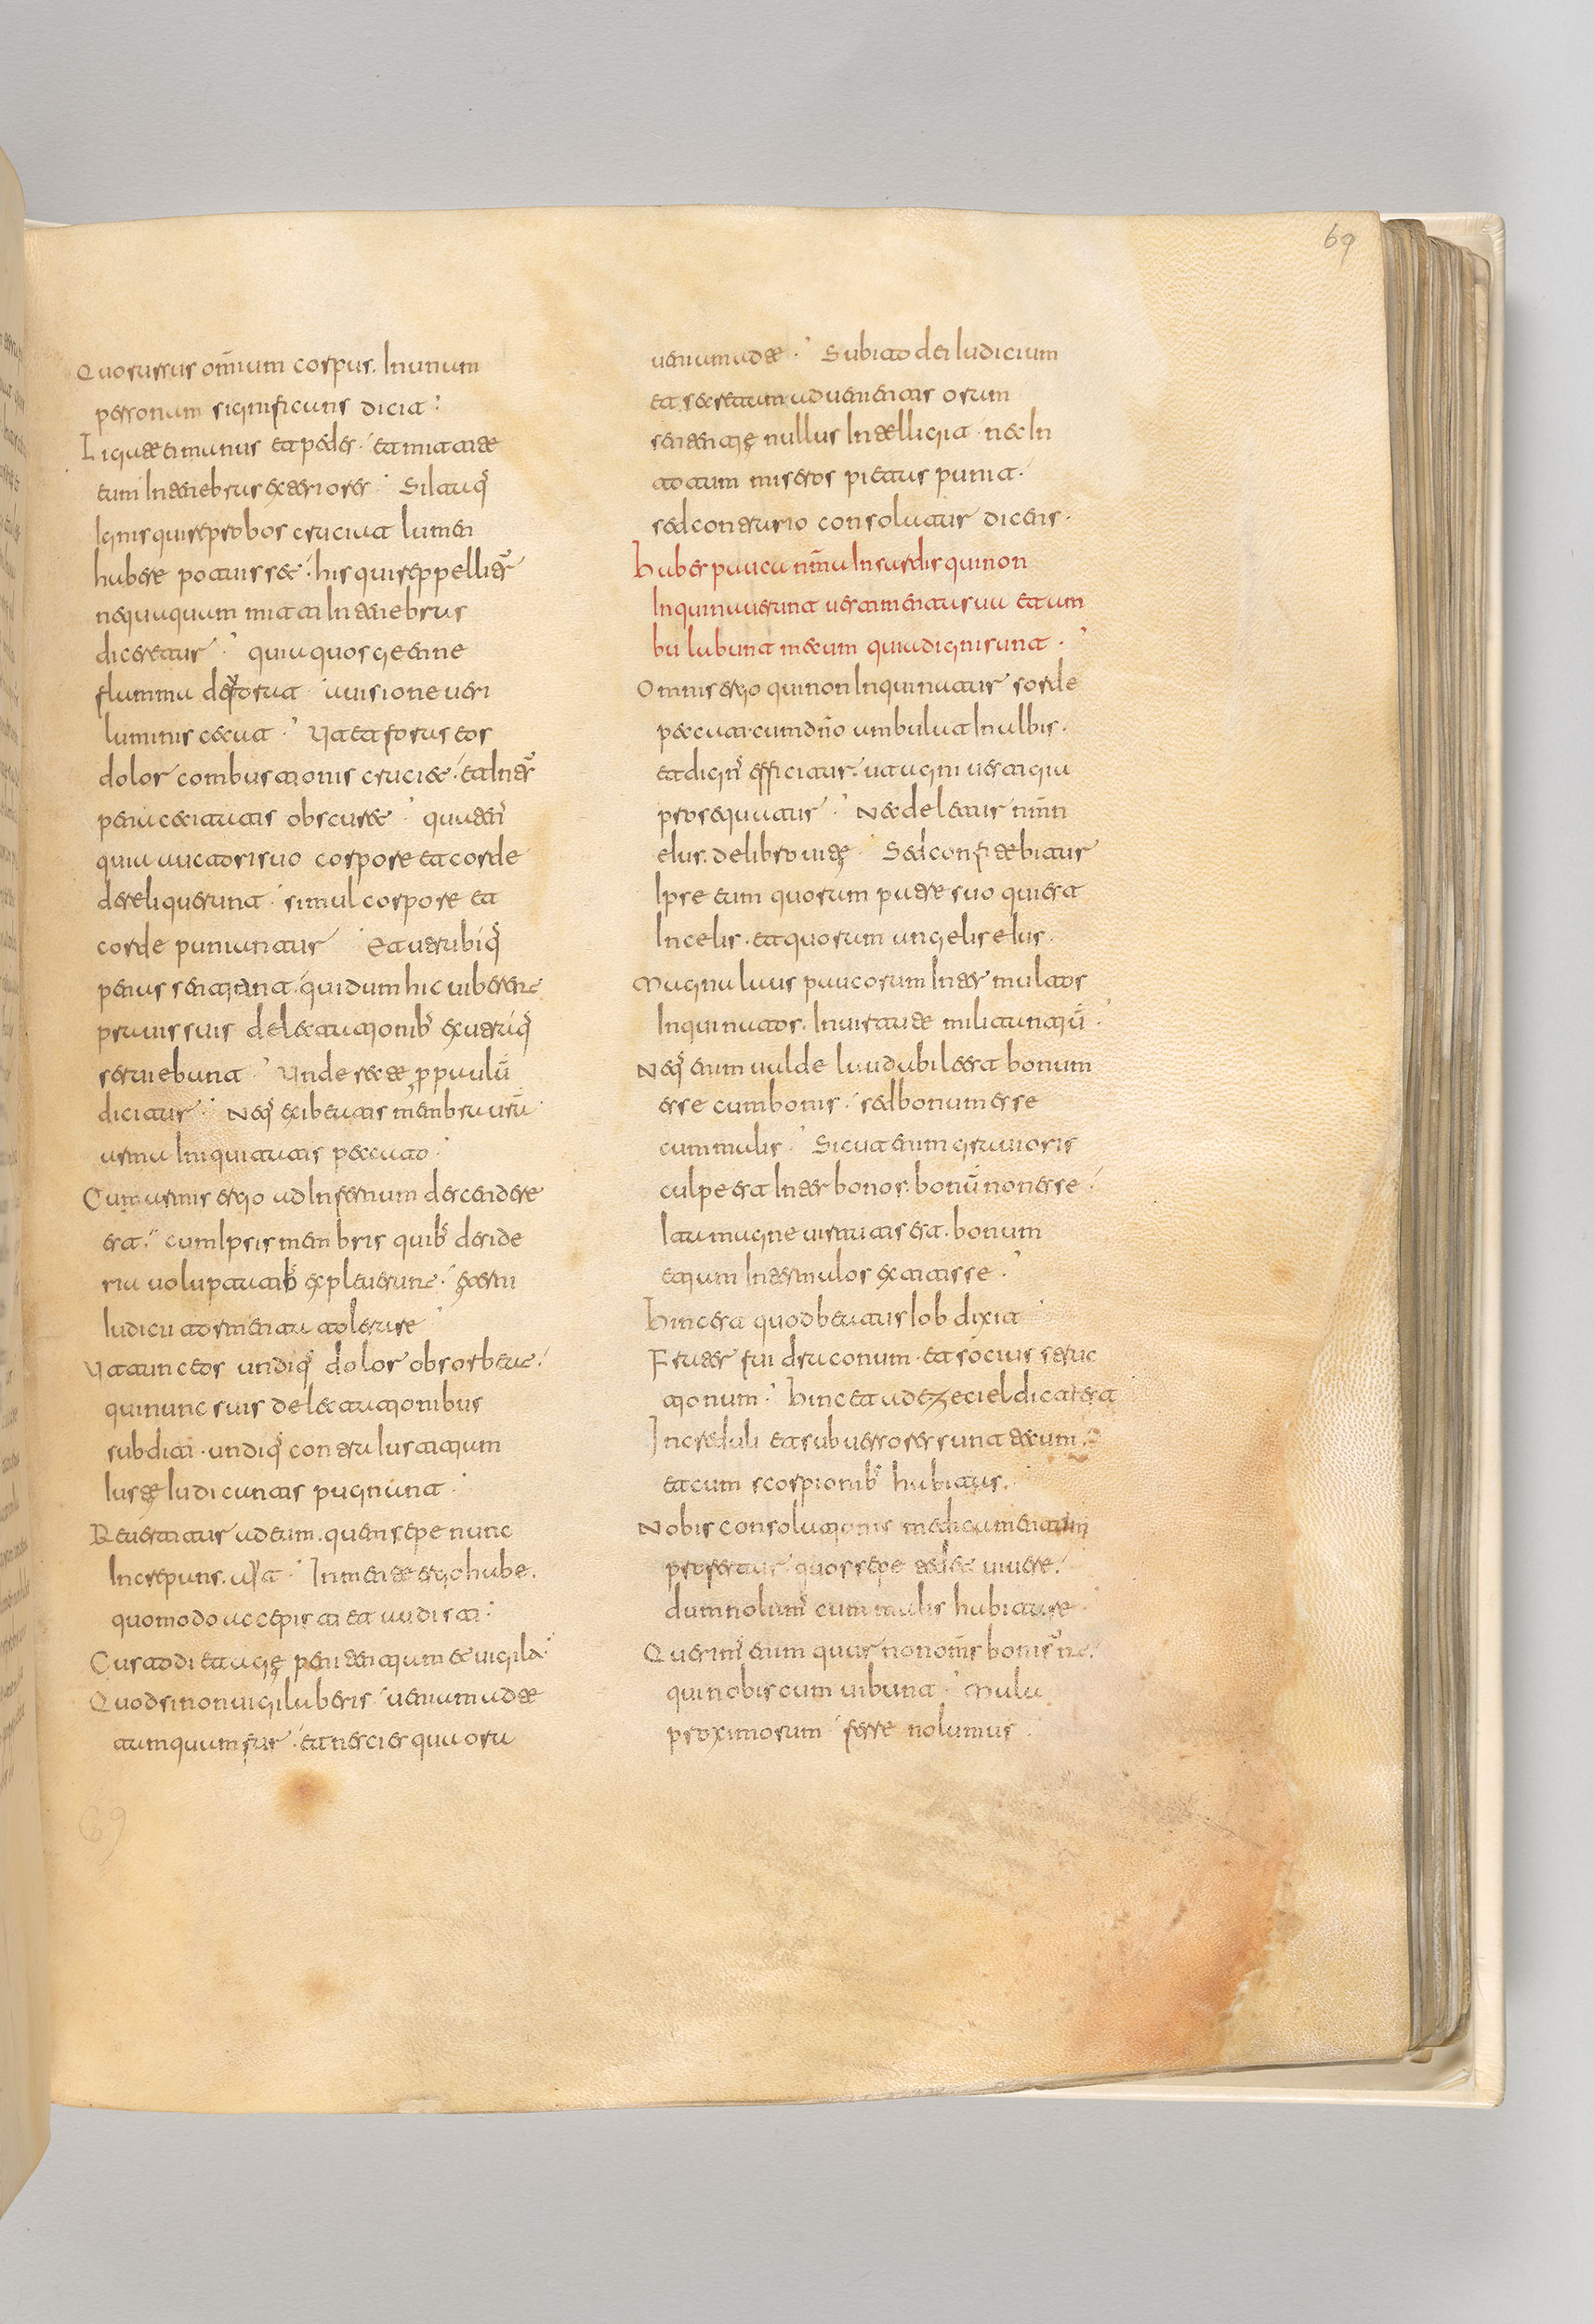 69
Quorursus omīum corpus. Inunum
personam significans dicit:
Ligate ei manus et pedes. et mittite
eum In tenebras exteriores. Si itaq;
Ignis qui reprobos cruciat lumen
habere potuisset. his qui reppellitr̄
nequaquam mitti In tenebras
diceretur. quia quos geenne
flamma deforat. a uisione ueri
luminis cecat. Ut et foras eos
dolor combustionis cruciet. et Intr̄
pena cecitatis obscuret. qua ten
quia auctori suo corpore et corde
dereliquerunt. simul corpore et
corde puniuntur. Et utrubiq;
penas sentiant. qui dum hic uiberent
prauis suis delectationib; ex utriq;
seruiebant. Unde recte ꝓ paulū
dicitur. Neq; exibeatis membra urā
arma Iniquitatis peccato.
Cum armis ergo ad Infernum descendere
est. cum Ipsis membris quib; deside
ria uoluptatib; expleuerunt. externi
Iudicii tormenta tolerare
Ut tunc eos undiq; dolor obsorbeat.
qui nunc suis delectationibus
subditi. undiq; contra Iustitiam
Iuste Iudicantis pugnant.
Reuertatur ad eum. quem sepe nunc
Increpans. ast. In mente ergo habe.
quomodo accepisti et audisti.
Custodi et age penitentiam et uigila.
Quod si non uigilaberis. ueniam ad te
tamquam fur. et nescies qua ora
ueniam ad te. Subito dei Iudicium
et secretum aduenientis oram
sententie nullus Intelligit. nec In
totum miseros pietatis punit.
sed contrario consolatur dicens.
Habes pauca nm̄na In sardis qui non
Inquinauerunt uestimenta sua et am
bulabunt mecum quia digni sunt.
Omnis ergo qui non Inquinatur sorde
peccati. cum dn̄o ambulat In albis.
et dign; efficitur. ut agni uestigia
prosequatur. Nec deletur nmn
eius. de libro uite. Sed confitebitur
Ipse eum quoram patre suo qui est
In celis. et quoram angelis eius.
Magna laus paucorum Inter multos
Inquinatos. In uirtute militantiū.
Neq; enim ualde laudabile est bonum
esse cum bonis. sed bonum esse
cum malis. Sicut enim grauioris
culpe est Inter bonos. bonū non esse.
Ita magne uirtutis est. bonum
etiam Inter malos extitisse.
Hinc est quod beatus Iob dixit
Frater fui draconum. et socius struc
tionum. Hinc et ad ezeciel dictū est
Increduli et subuersores sunt tecum.
et cum scorpionib; habitas.
Nobis consolationis medicamentum
profertur. quos sepe tedet uiuere.
dum nolum; cum malis habitare.
Querim; enim quur non om̄s bonis̄nt.
qui nobiscum uibunt. Mala
proximorum ferre nolumus.
69